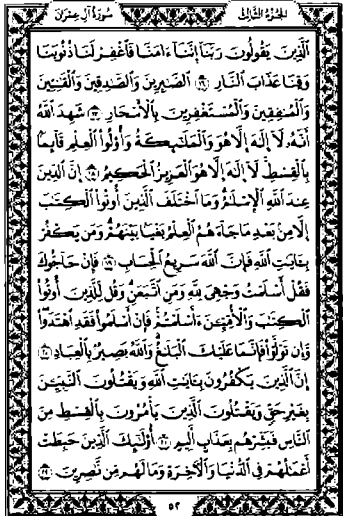 الجزء الثالث
سورة آل عمران
الَّذِينَ يَقُولُونَ رَبَّنَا إِنَّنَا ءَامَنَّا فَاغْفِرْ لَنَا ذُنُوبَنَا
وَقِنَا عَذَابَ النَّارِ ﴿١٦﴾ الصَّٰبِرِينَ وَالصَّٰدِقِينَ وَالْقَٰنِتِينَ
وَالْمُنفِقِينَ وَالْمُسْتَغْفِرِينَ بِالْأَسْحَارِ ﴿١٧﴾ شَهِدَ اللَّهُ
أَنَّهُ لَا إِلَٰهَ إِلَّا هُوَ وَالْمَلَٰٓئِكَةُ وَأُوْلُوا الْعِلْمِ قَآئِمًا
بِالْقِسْطِ لَا إِلَٰهَ إِلَّا هُوَ الْعَزِيزُ الْحَكِيمُ ﴿١٨﴾ إِنَّ الدِّينَ
عِندَ اللَّهِ الْإِسْلَٰمُ وَمَا اخْتَلَفَ الَّذِينَ أُوتُوا الْكِتَٰبَ
إِلَّا مِنۢ بَعْدِ مَا جَآءَهُمُ الْعِلْمُ بَغْيًۢا بَيْنَهُمْ وَمَن يَكْفُرْ
بِـَٔايَٰتِ اللَّهِ فَإِنَّ اللَّهَ سَرِيعُ الْحِسَابِ ﴿١٩﴾ فَإِنْ حَآجُّوكَ
فَقُلْ أَسْلَمْتُ وَجْهِيَ لِلَّهِ وَمَنِ اتَّبَعَنِ وَقُل لِّلَّذِينَ أُوتُوا
الْكِتَٰبَ وَالْأُمِّيِّـۧنَ ءَأَسْلَمْتُمْ فَإِنْ أَسْلَمُوا فَقَدِ اهْتَدَوا
وَّإِن تَوَلَّوْا فَإِنَّمَا عَلَيْكَ الْبَلَٰغُ وَاللَّهُ بَصِيرٌۢ بِالْعِبَادِ ﴿٢٠﴾
إِنَّ الَّذِينَ يَكْفُرُونَ بِـَٔايَٰتِ اللَّهِ وَيَقْتُلُونَ النَّبِيِّـۧنَ
بِغَيْرِ حَقٍّ وَيَقْتُلُونَ الَّذِينَ يَأْمُرُونَ بِالْقِسْطِ مِنَ
النَّاسِ فَبَشِّرْهُم بِعَذَابٍ أَلِيمٍ ﴿٢١﴾ أُوْلَٰٓئِكَ الَّذِينَ حَبِطَتْ
أَعْمَٰلُهُمْ فِي الدُّنْيَا وَالْءَاخِرَةِ وَمَا لَهُم مِّن نَّٰصِرِينَ ﴿٢٢﴾
٥٢